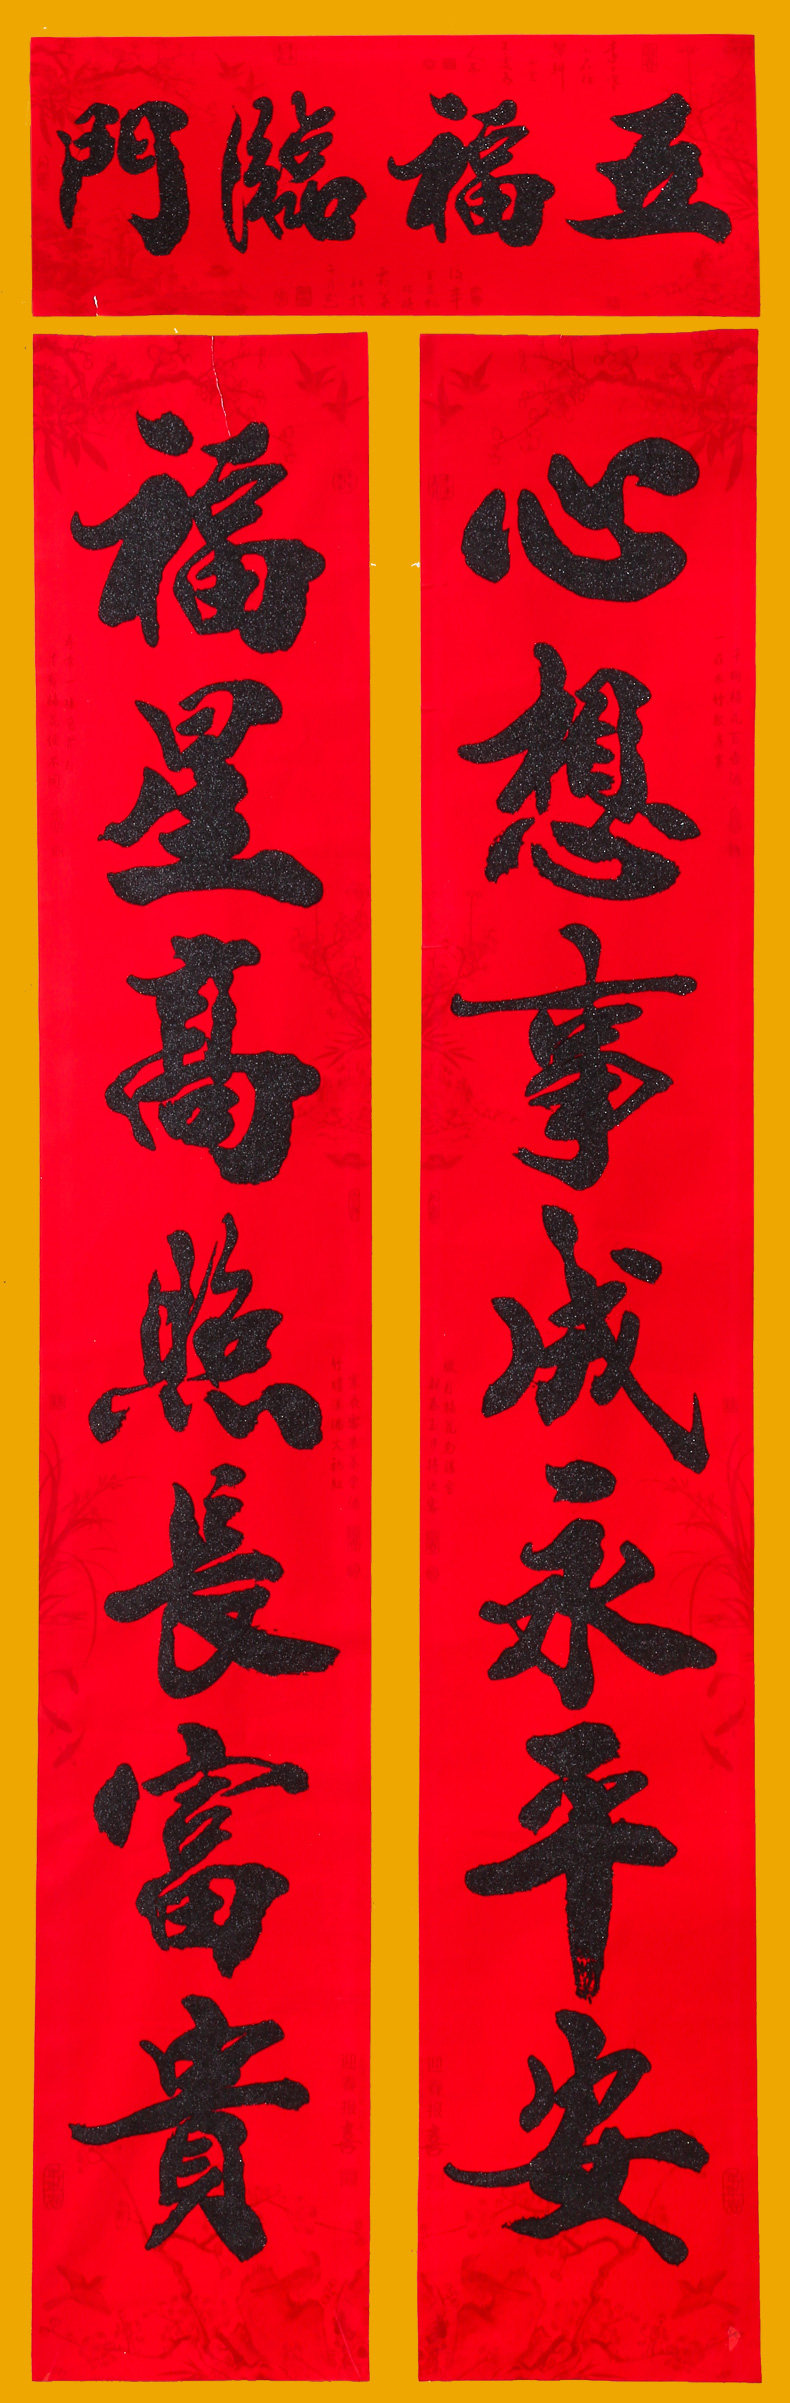 五福臨門
心想事成永平安
福星高照長富貴